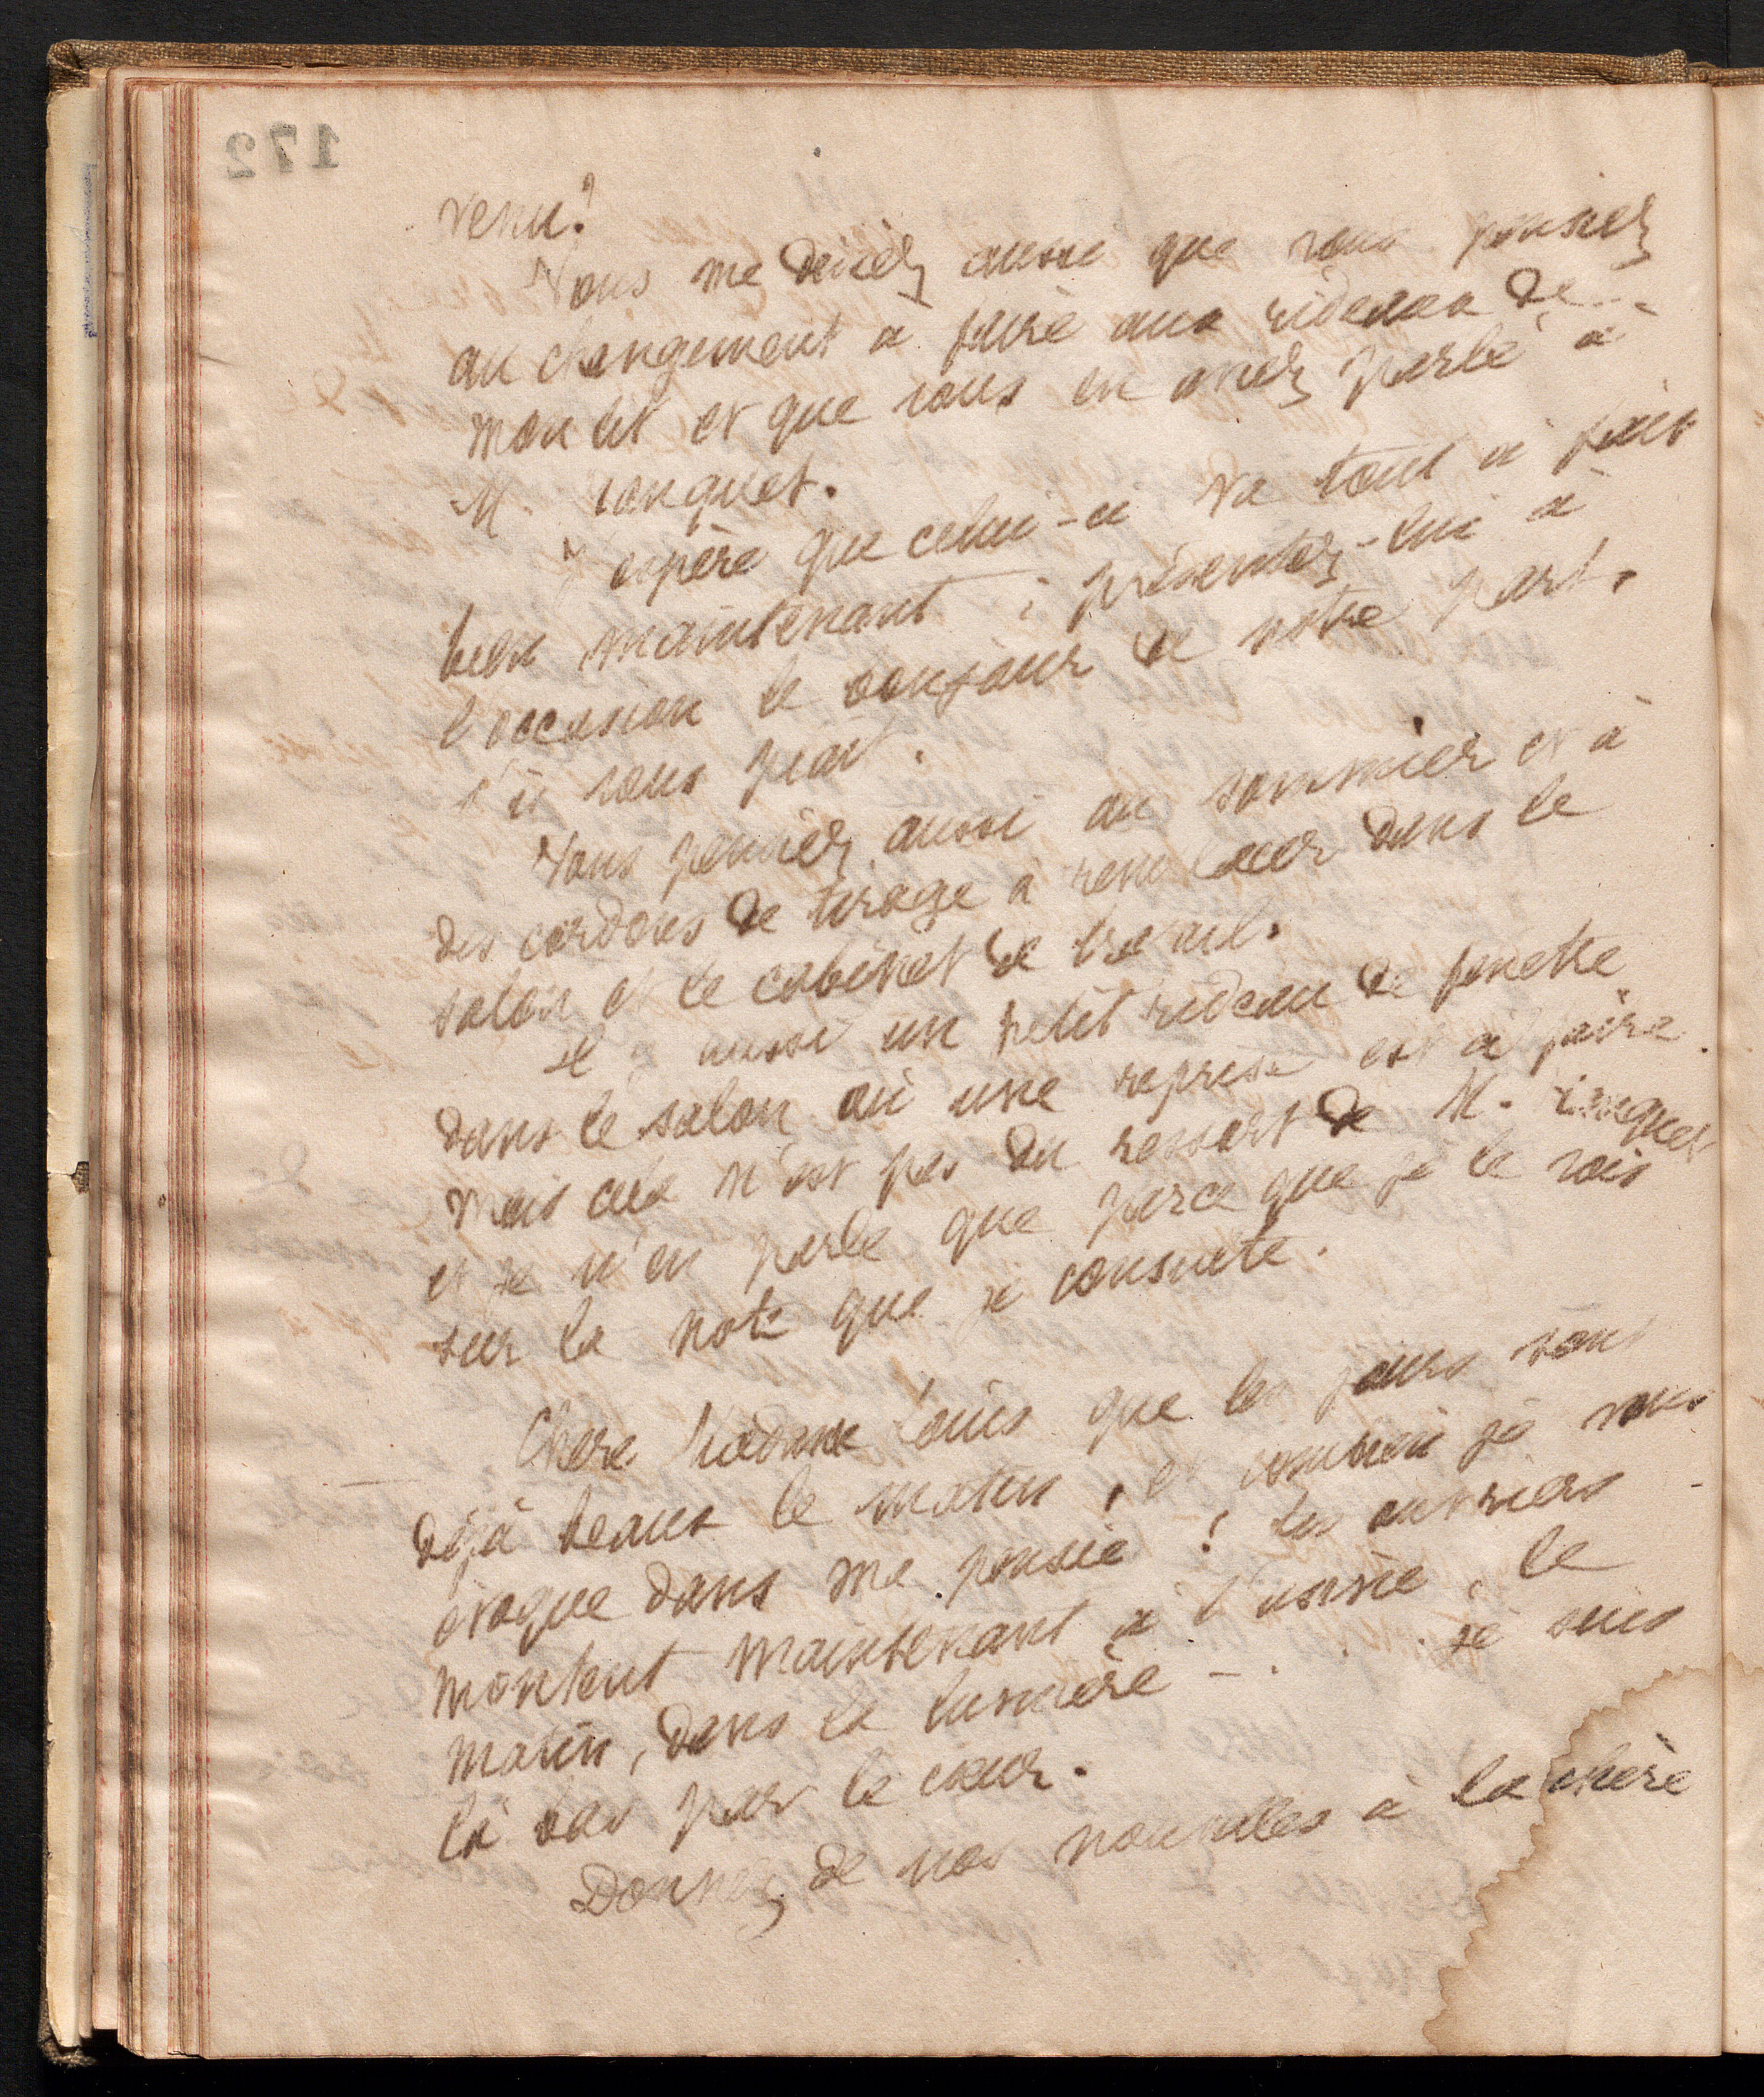 172
venu?
Vous me disiez aussi que vous pensiez
au changement à faire aux rideaux de
mon lit et que vous en aviez parlé à
M. Conquet.
J'espère que celui-ci va tout à fait
bien maintenant ; présentez-lui à
l'occasion le bonjour de notre part,
s'il vous plait.
Vous pensiez aussi au sommier et à
des cordons de tirage à remplacer dans le
salon et le cabinet de travail.
Il y a aussi un petit rideau de fenetre
dans le salon où une reprise est à faire.
Mais cela n'est pas du ressort de M.
et je n'en parle que parce que je le vois
sur la note que je consulte.
Chere Madame Louis que les jours sont
déjà beaux le matin, et combien je vous
évoque dans ma pensée ! Les ouvriers
montent maintenant à l'usine, le
matin, dans la lumière - . . . je suis
là bas par le cœur.
Donnez de nos nouvelles à la chère